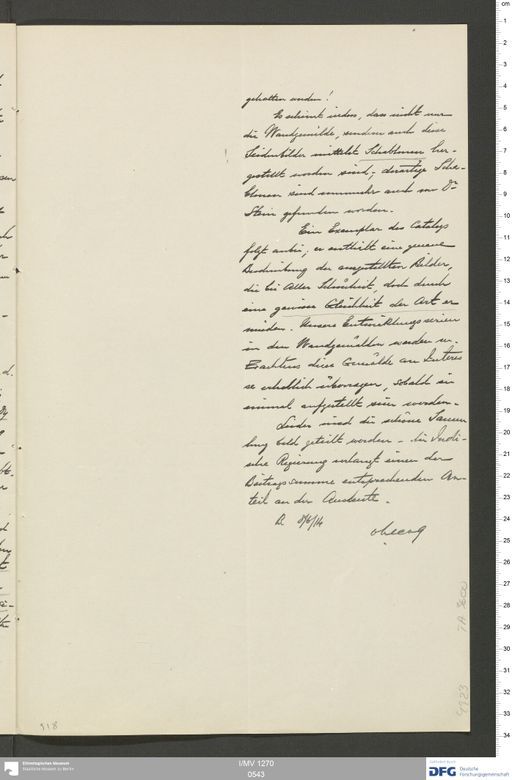 gehalten werden!
Es scheint indess, dass nicht nur
die Wandgemälde, sondern auch diese
Seidenbilder mittelst Schablonen her-
gestellt worden sind; derartige Scha-
blonen sind nunmehr auch von Dr
Stein gefunden worden.
Ein Exemplar des Catalogs
folgt anbei; er enthält eine genaue
Beschreibung der ausgestellten Bilder,
die bei aller Schönheit, doch durch
eine gewisse Gleichheit der Art er
müden. Unsere Entwicklungsserien
in den Wandgemälden werden m.
Erachtens diese Gemälde an Interes
se erheblich überragen, sobald sie
einmal aufgestellt sein werden.
Leider wird die schöne Samm
lung bald geteilt werden - die Indi-
sche Regierung verlangt einen der
Beitragssumme entsprechenden An-
teil an der Ausbeute.
B. 8/6/14
118
Ethnologisches Museum
Staatliche Museen zu Berlin
I/MV 1270
0543
DFG Deutsche
Forschungsgemeinschaft
cm
1
2
3
4
5
6
7
8
9
10
11
12
13
14
15
16
17
18
19
20
21
22
23
24
25
26
27
28
29
30
31
32
33
34